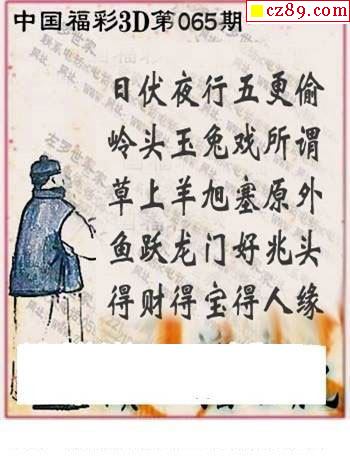 cz89.com
中国福彩3D第065期
日伏夜行五更偷
岭头玉兔戏所谓
草上羊旭塞原外
鱼跃龙门好兆头
得财得宝得人缘